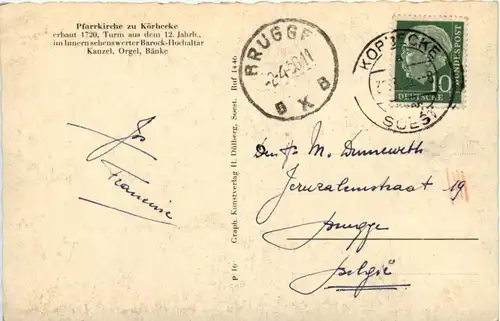 Pfarrkirche zu Körbecke
erbaut 1720, Turm aus dem 12. Jahrh.,
im Innern sehenswerter Barock-Hochaltar
Kanzel, Orgel, Bänke
BRUGGE
BXB
SOEST
10
DEUTSCHE
BUNDESPOST
P 16 Graph. Kunstverlag H. Dülberg, Soest. Ruf 1446
Francine
M.
Jeruzalemstraat 19
Brugge
België